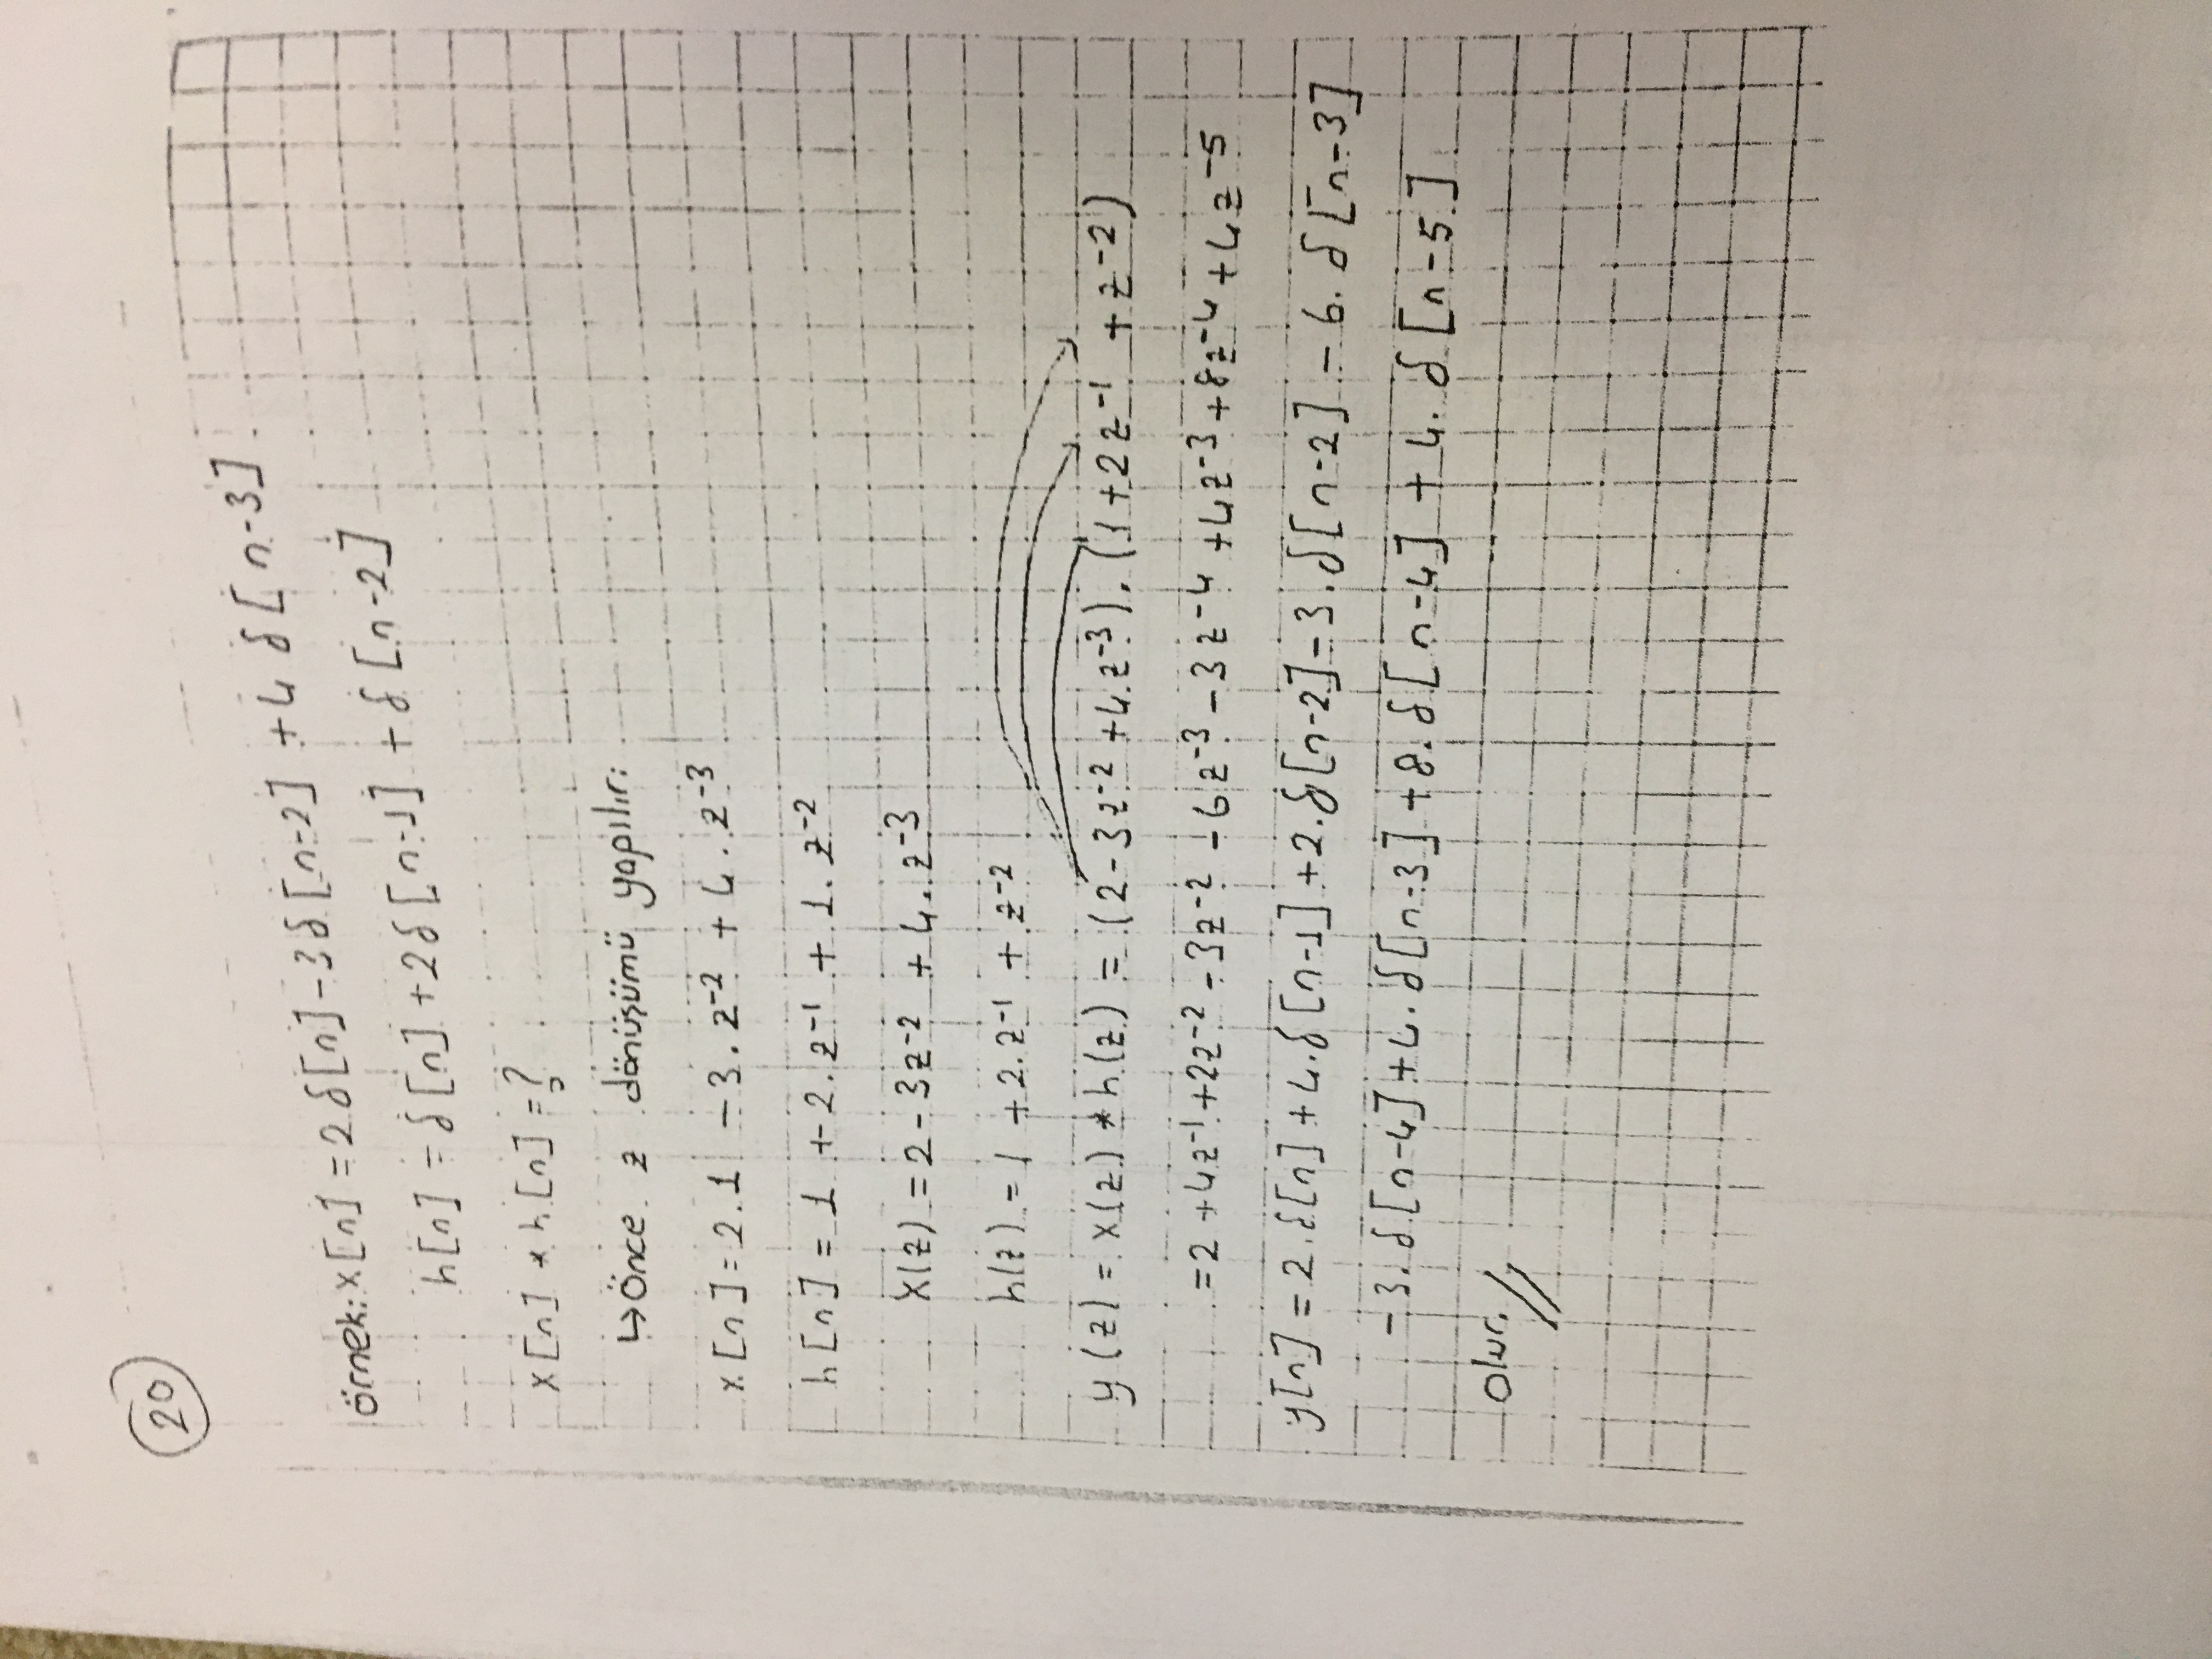 20
örnek: x[n] = 2δ[n] - 3δ[n-2] + 4 δ[n-3]
h[n] = δ[n] + 2δ[n-1] + δ[n-2]
x[n] * h[n] = ?
↳ Önce z dönüşümü yapılır:
x[n] = 2.1 - 3.z⁻² + 4.z⁻³
h[n] = 1 + 2.z⁻¹ + 1.z⁻²
X(z) = 2 - 3z⁻² + 4.z⁻³
h(z) = 1 + 2.z⁻¹ + z⁻²
y(z) = x(z) * h(z) = (2 - 3z⁻² + 4z⁻³).(1 + 2z⁻¹ + z⁻²)
= 2 + 4z⁻¹ + 2z⁻² - 3z⁻² - 6z⁻³ - 3z⁻⁴ + 4z⁻³ + 8z⁻⁴ + 4z⁻⁵
y[n] = 2.δ[n] + 4.δ[n-1] + 2.δ[n-2] - 3.δ[n-2] - 6.δ[n-3]
- 3.δ[n-4] + 4.δ[n-3] + 8.δ[n-4] + 4.δ[n-5]
olur. //